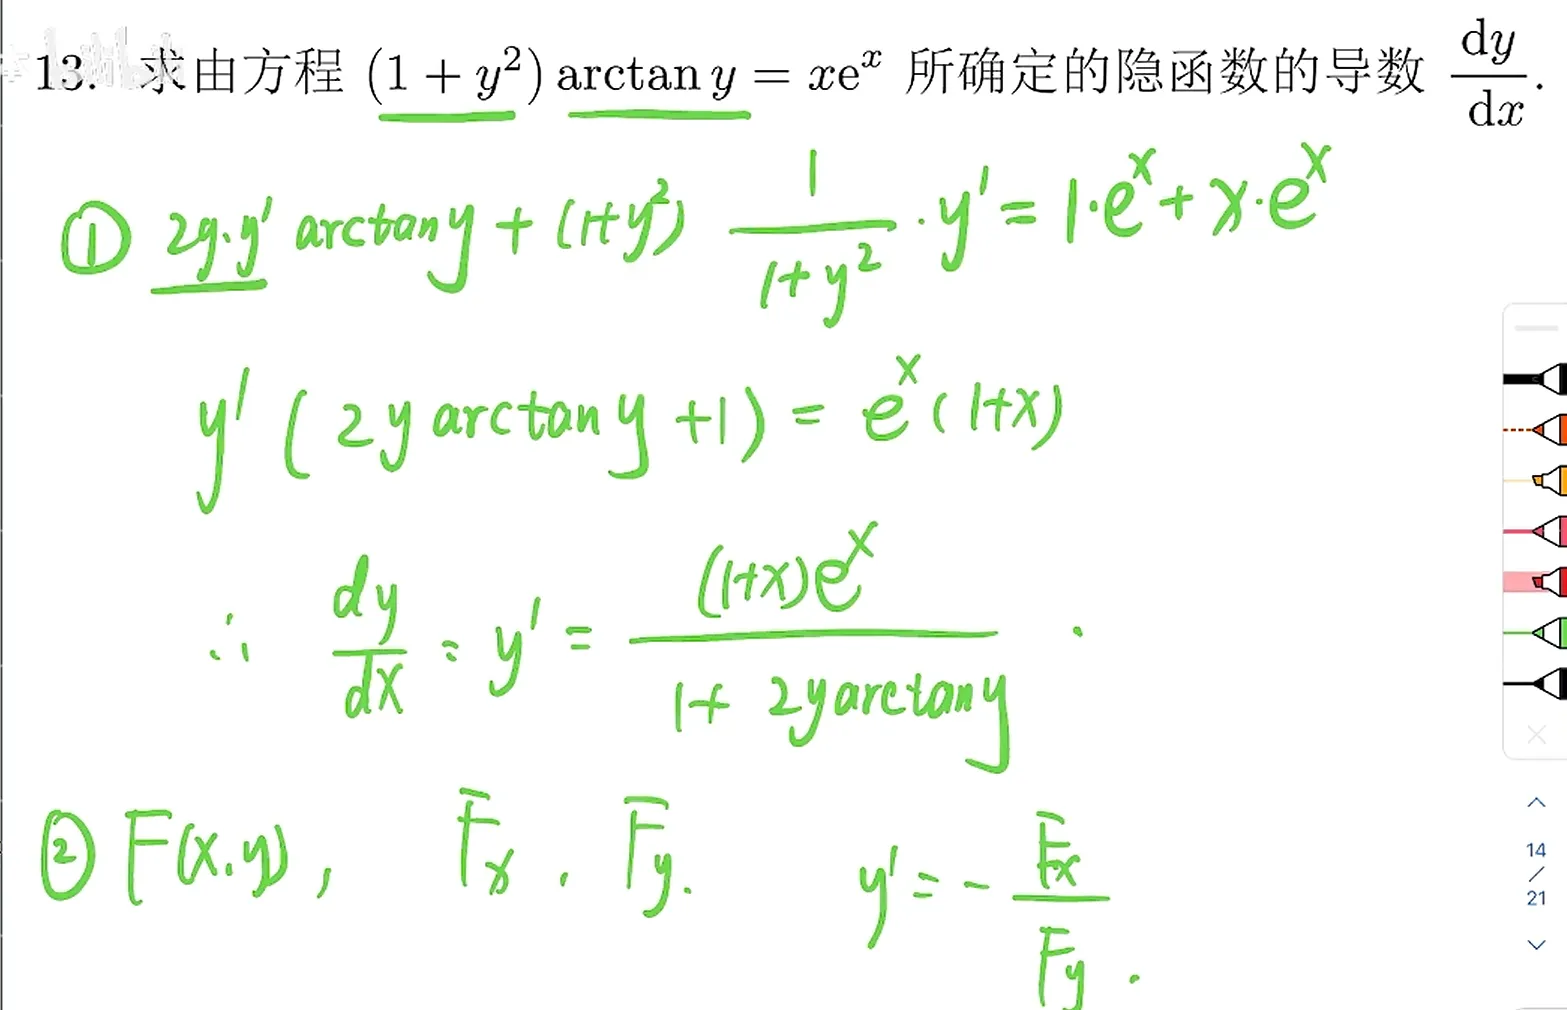 13. 求由方程 (1 + y²) arctan y = xeˣ 所确定的隐函数的导数 dy/dx.
① 2y·y' arctany + (1+y²) 1/(1+y²) · y' = 1·eˣ + x·eˣ
y' ( 2y arctany +1 ) = eˣ (1+x)
∴ dy/dx = y' = (1+x)eˣ / (1+ 2yarctany) .
② F(x,y), Fx . Fy. y' = - Fx/Fy .
14
/
21